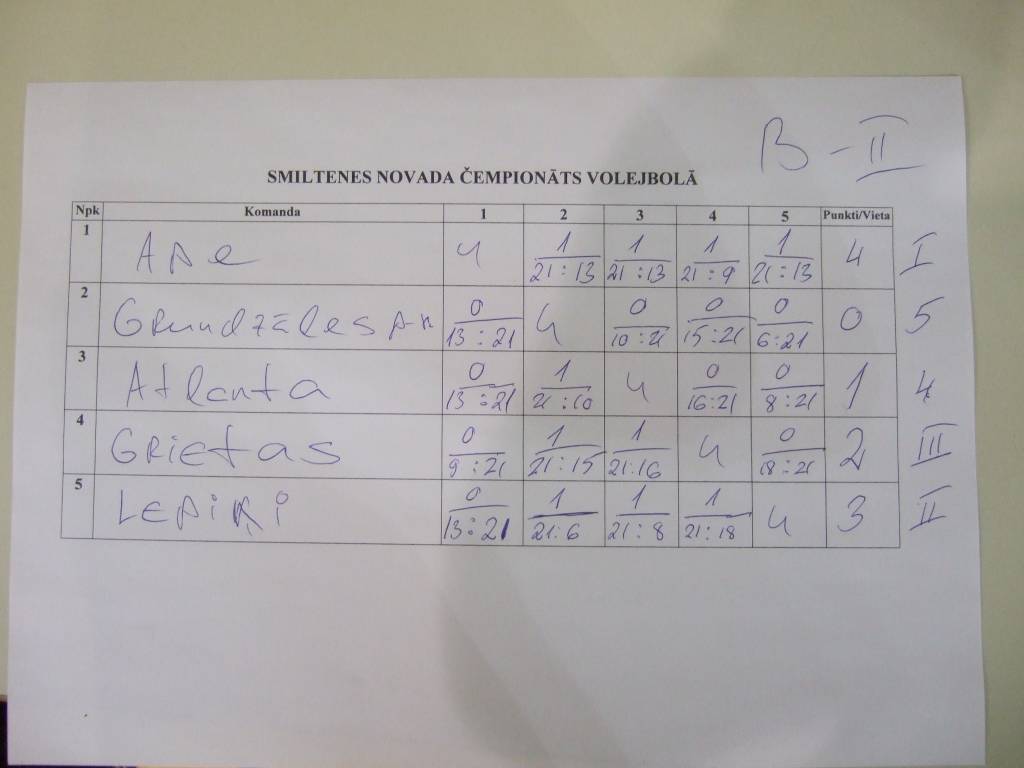 B - II
SMILTENES NOVADA ČEMPIONĀTS VOLEJBOLĀ
Npk Komanda 1 2 3 4 5 Punkti/Vieta
1 Ape 4 1 21:13 1 21:13 1 21:9 1 21:13 4 I
2 Grundzāles 0 13:21 4 0 10:21 0 15:21 0 6:21 0 5
3 Atlanta 0 13:21 1 21:10 4 0 16:21 0 8:21 1 4
4 Grietas 0 9:21 1 21:15 1 21:16 4 0 18:21 2 III
5 LEPIŅI 0 13:21 1 21:6 1 21:8 1 21:18 4 3 II